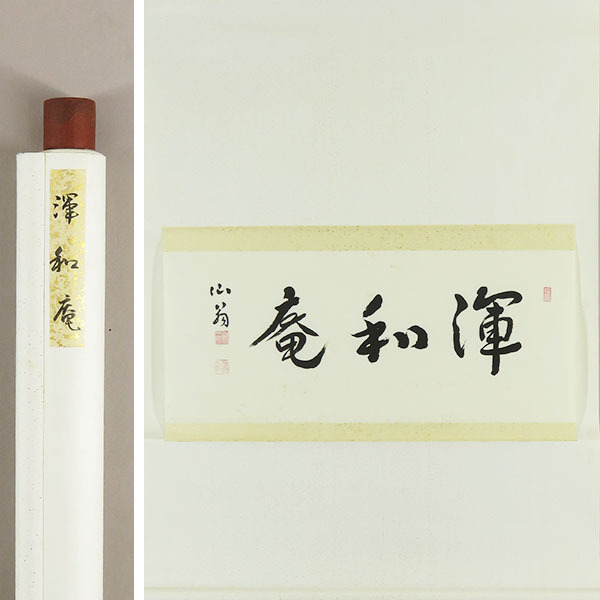 渾和庵
渾和庵
仙翁